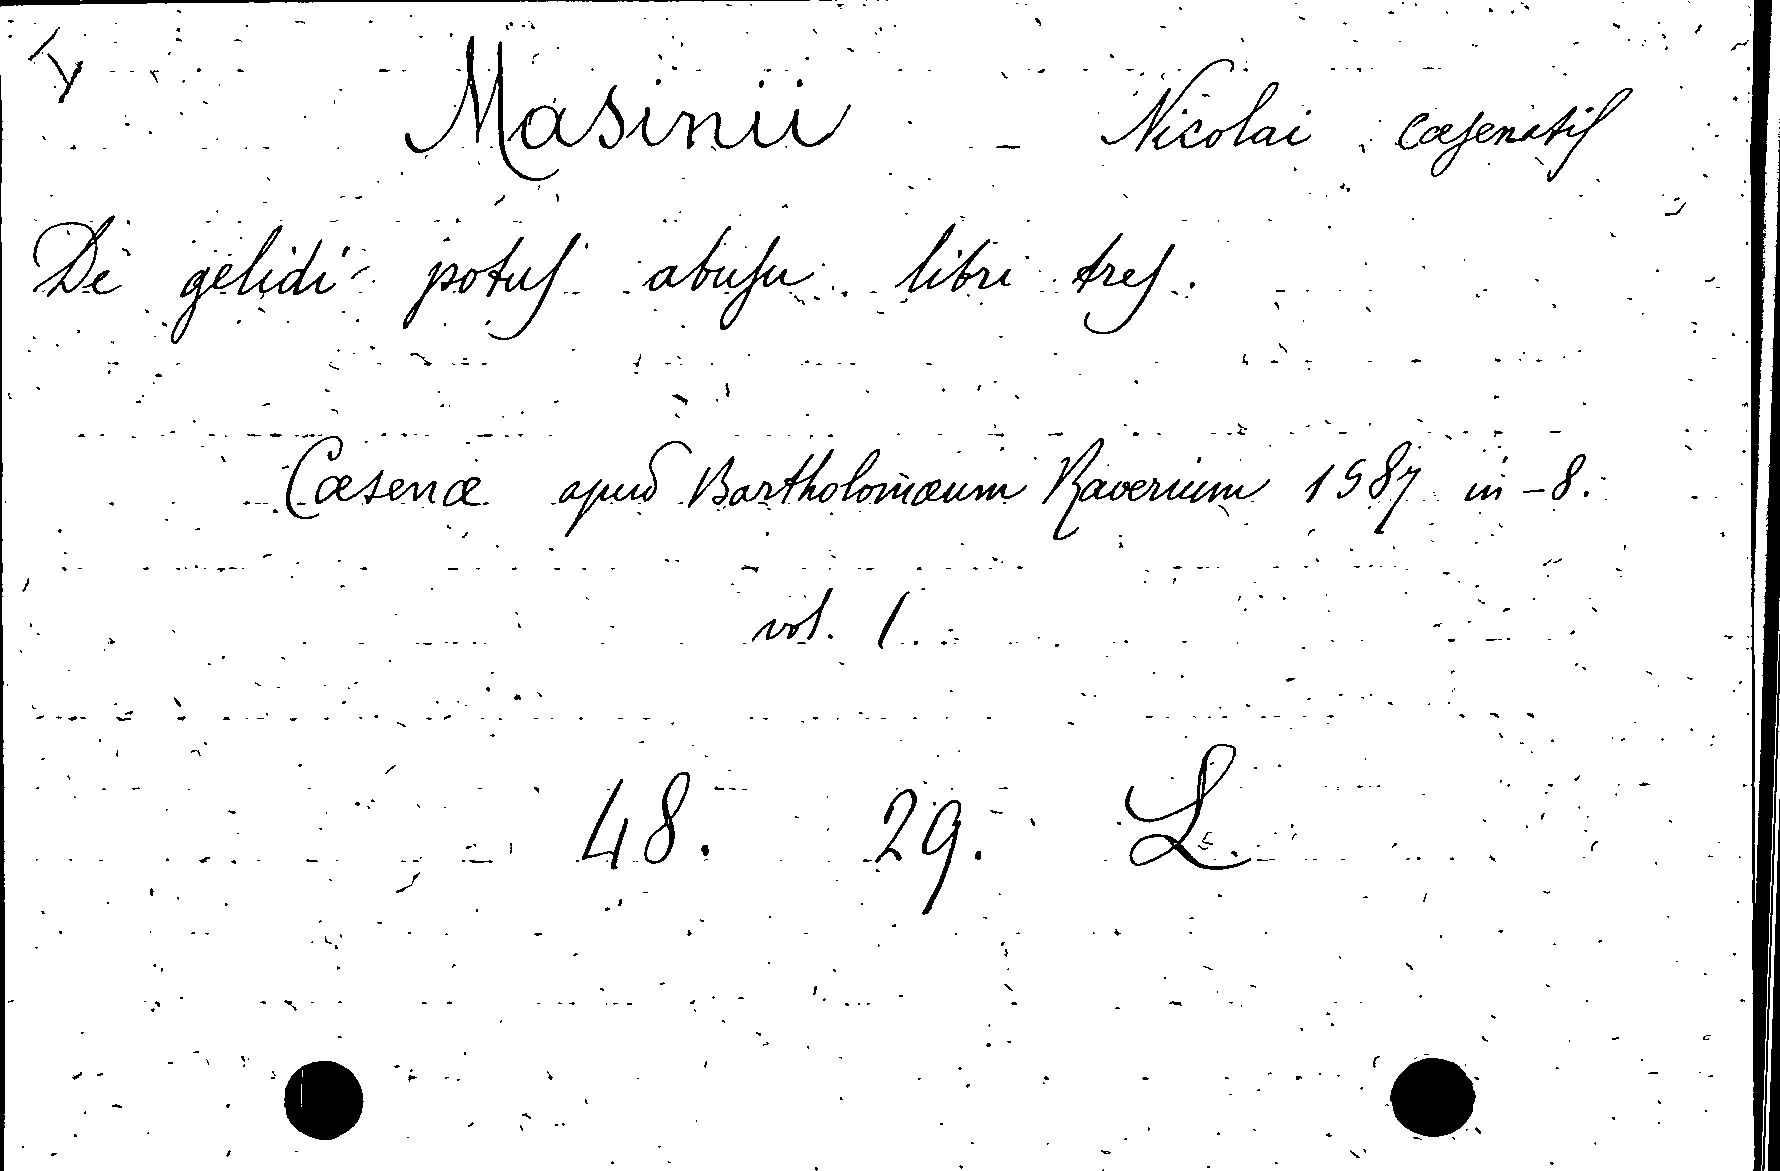 Masinii - Nicolai cæsenatis
De gelidi potus abusu libri tres.
Cæsenæ apud Bartholomæum Raverium 1587 in-8.
vol. 1.
48. 29. L.